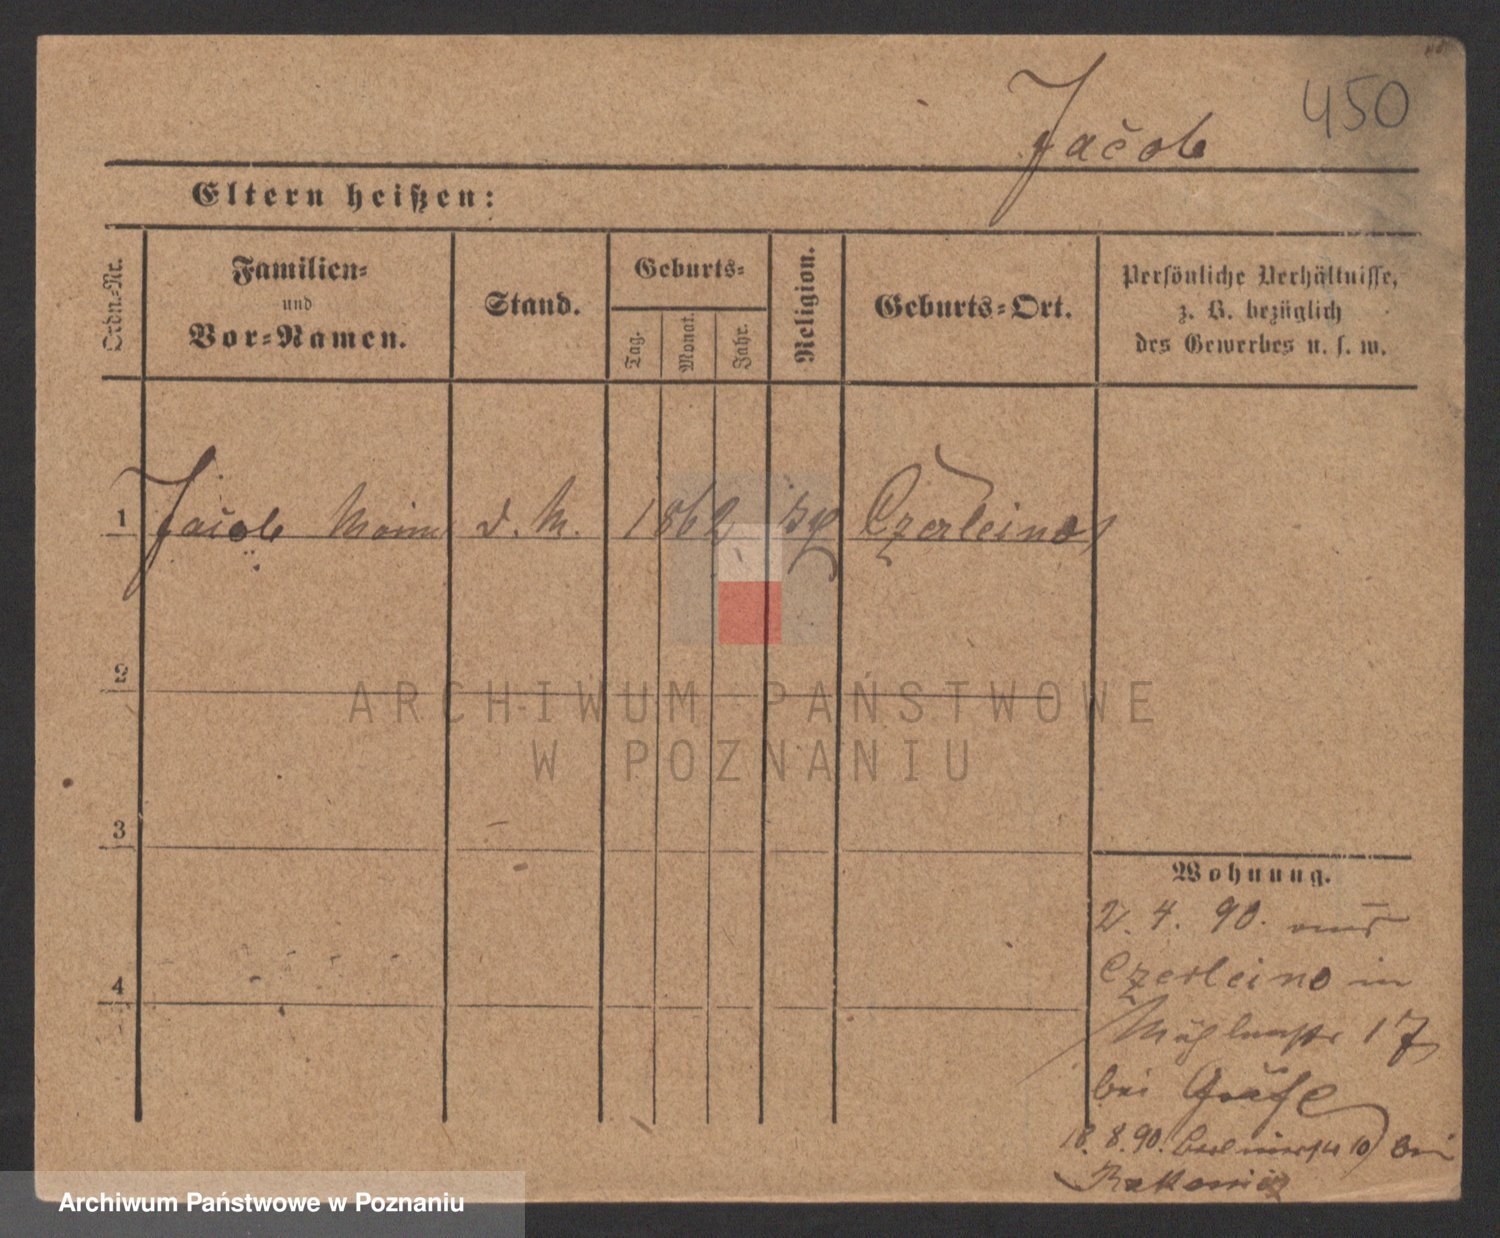 450
Jacob
Eltern heißen:
Ordn.-Nr.
Familien-
und
Vor-Namen.
Stand.
Geburts-
Tag.
Monat.
Jahr.
Religion.
Geburts-Ort.
Persönliche Verhältnisse,
z. B. bezüglich
des Gewerbes u. s. w.
1 Jacob d. M. 1862 Czerleino
2
3
4
ARCHIWUM PAŃSTWOWE
W POZNANIU
Wohnung.
2. 4. 90. aus
Czerleino in
Mühlenstr 17
bei Gräfe
18. 8. 90. Berlinerstr 10 bei
Archiwum Państwowe w Poznaniu